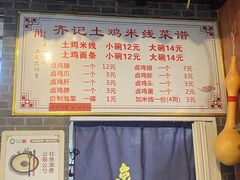 齐记土鸡米线菜谱
土鸡米线 小碗12元 大碗14元
土鸡面条 小碗12元 大碗14元
卤鸡腿 一个 12元 卤鸡翅 一个 7元
卤鸡爪 一个 3元 卤鸡肝 一个 3元
卤鸡头 一个 3元 卤鸡胗 一个 3元
卤鸡脖 一个 3元 卤鸡蛋 一个 2元
自制泡菜 一碟 1元 加米线一份(4两) 3元
杜绝浪费
公筷公勺